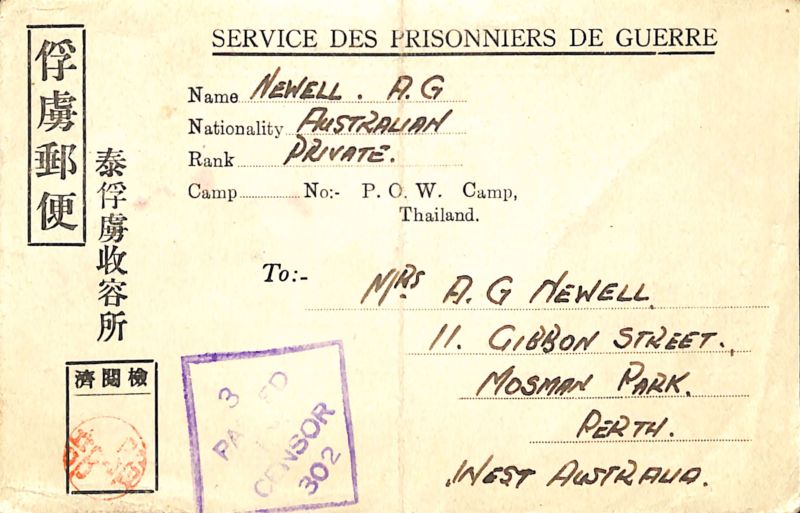 SERVICE DES PRISONNIERS DE GUERRE
俘虜郵便
泰俘虜收容所
Name NEWELL. A.G
Nationality AUSTRALIAN
Rank PRIVATE.
Camp No:- P. O. W. Camp,
Thailand.
To:- MRS A.G NEWELL
11. GIBBON STREET.
MOSMAN PARK.
PERTH.
WEST AUSTRALIA.
濟閲檢
3
PASSED
CENSOR
302